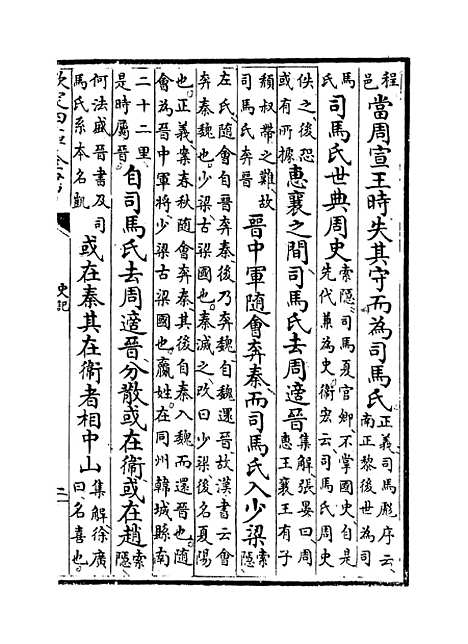 程
邑
當周宣王時失其守而為司馬氏
正義司馬彪序云
南正黎後世為司
馬
氏
司馬氏世典周史
索隱司馬夏官卿不掌國史自是
先代兼為史衛宏云司馬氏周史
佚之後恐
或有所據
惠襄之間司馬氏去周適晉
集解張晏曰周
惠王襄王有子
頽叔帶之難故
司馬氏奔晉
晉中軍隨會奔秦而司馬氏入少梁
索
隱
左氏隨會自晉奔秦後乃奔魏自魏還晉故漢書云會
奔秦魏也少梁古梁國也秦滅之改曰少梁後名夏陽
也正義案春秋隨會奔秦其後自秦入魏而還晉也隨
會為晉中軍將少梁古梁國也嬴姓在同州韓城縣南
二十二里
是時屬晉
自司馬氏去周適晉分散或在衞或在趙
索
隱
何法盛晉書及司
馬氏系本名凱
或在秦其在衞者相中山
集解徐廣
曰名喜也
欽定四庫全書
史記
二